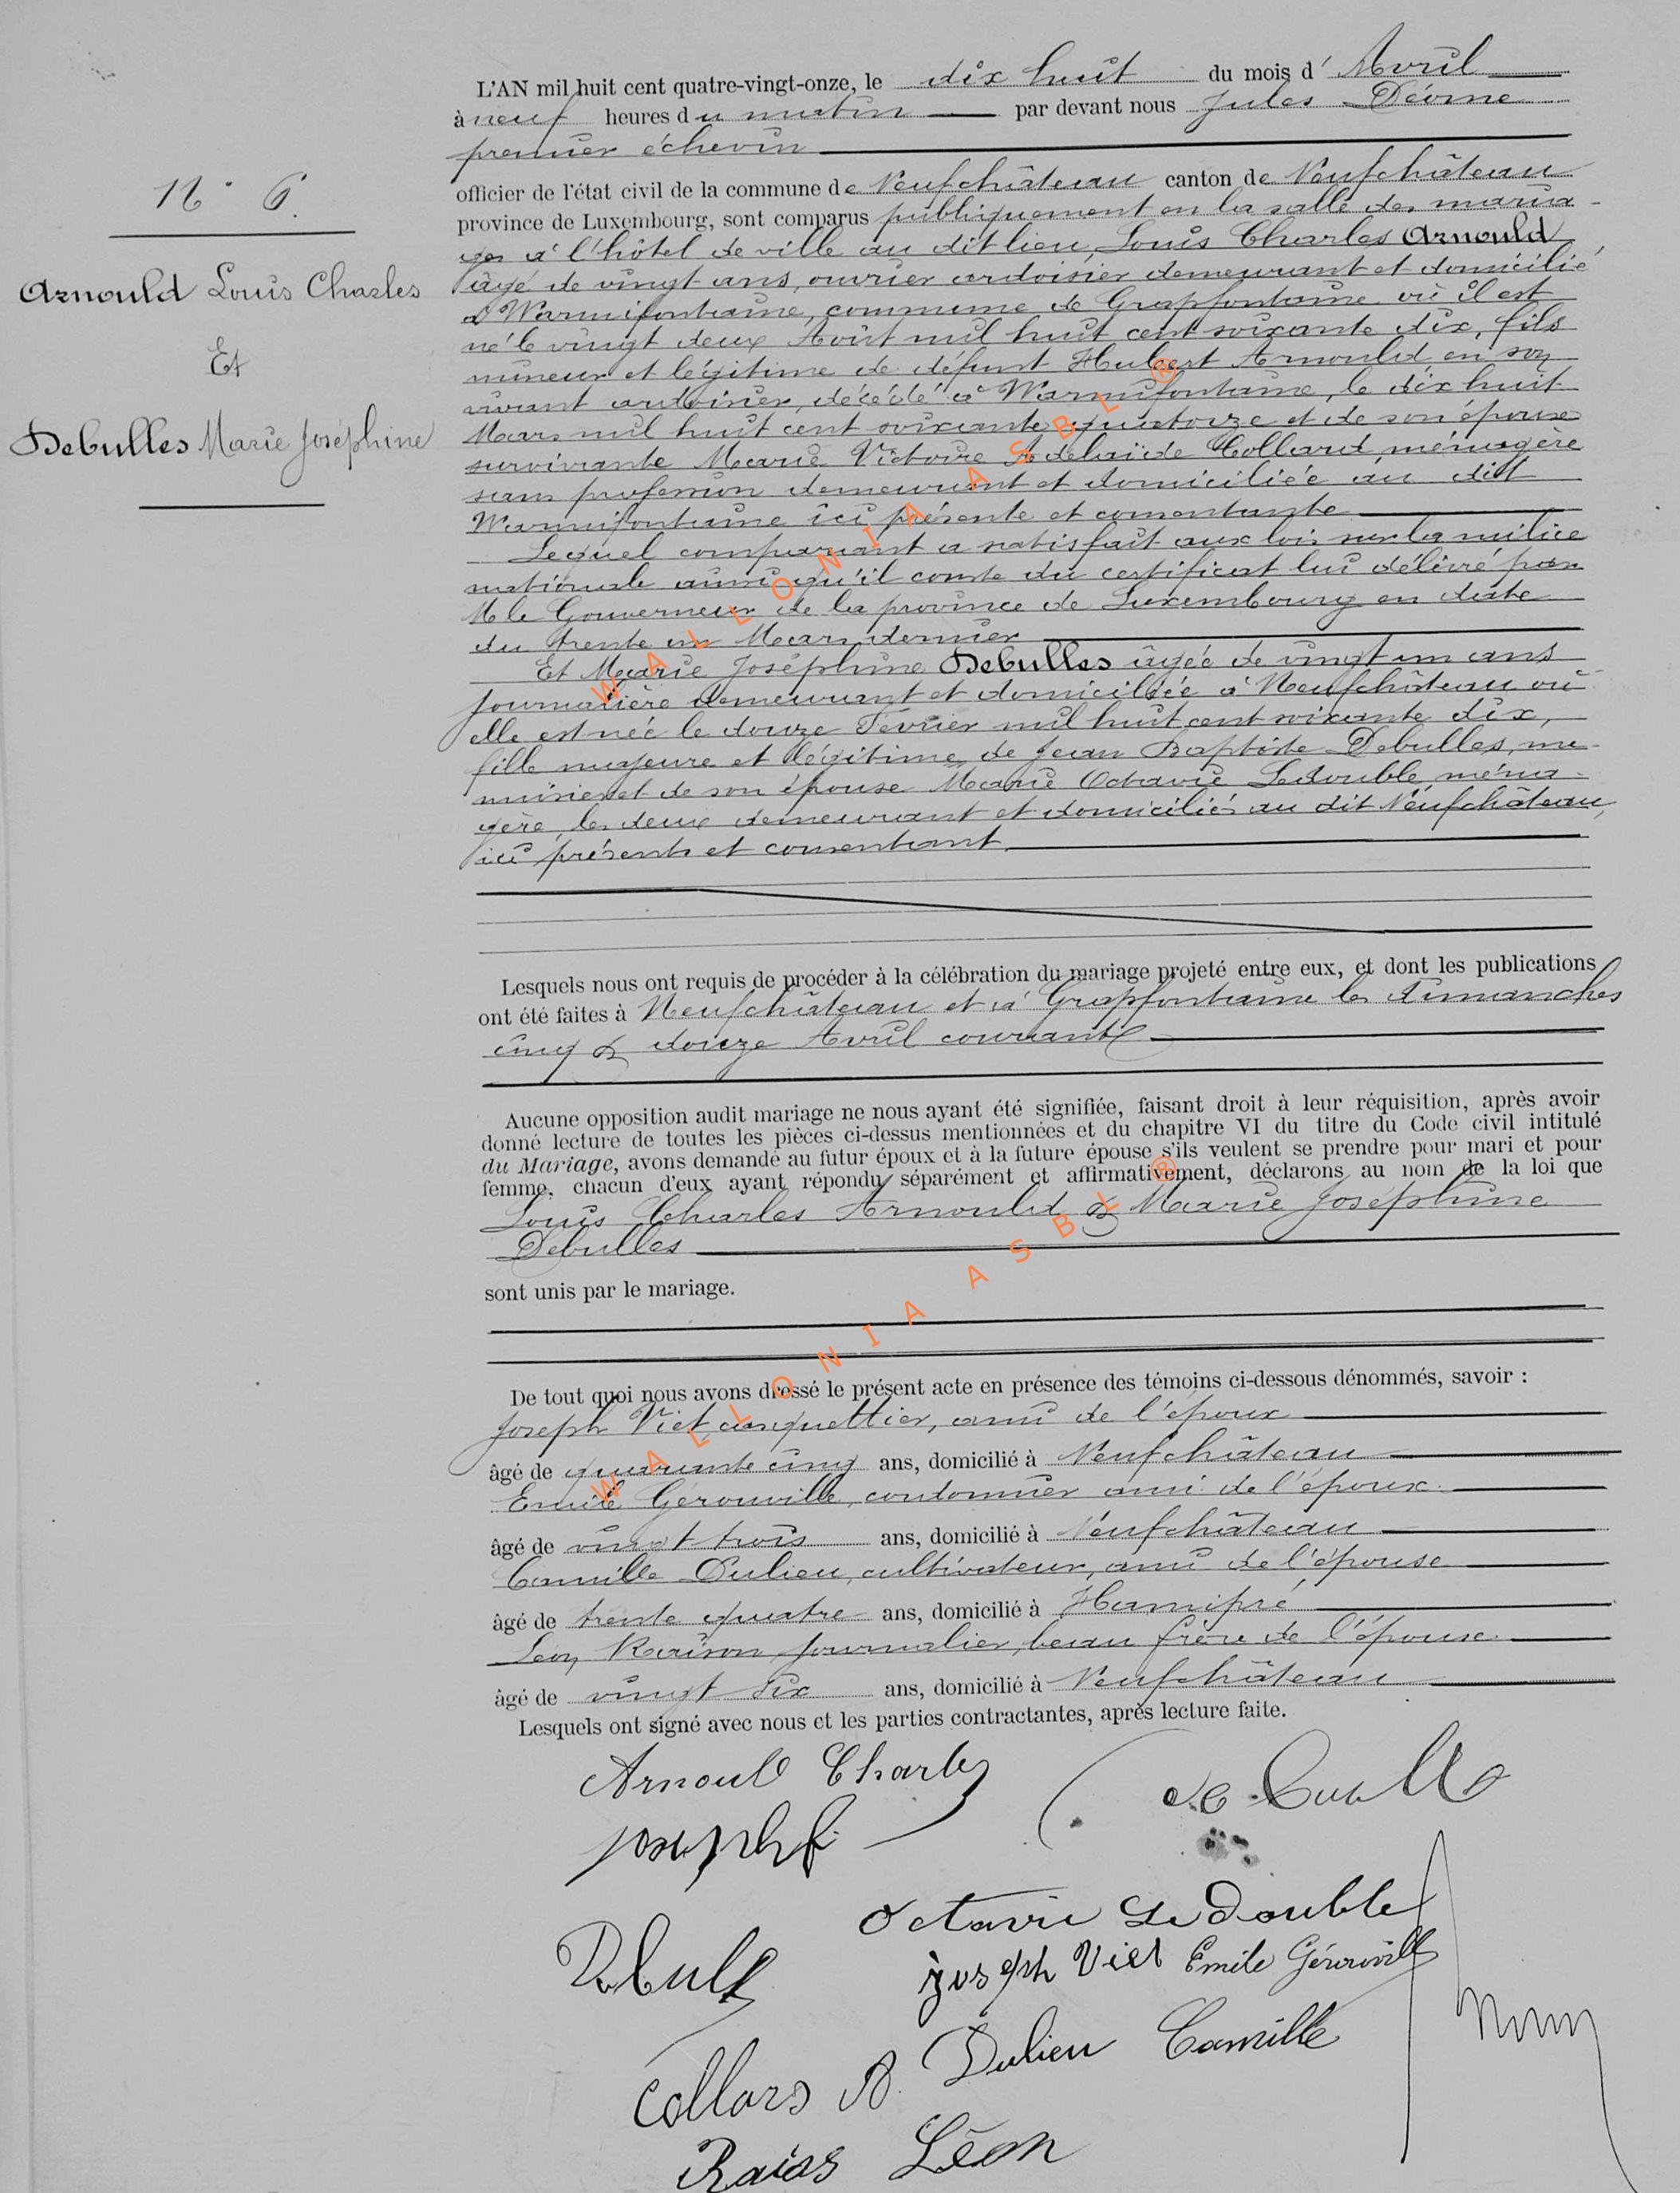 L'AN mil huit cent quatre-vingt-onze, le dix huit du mois d' Avril
à neuf heures du matin par devant nous Jules Déome
premier échevin
N° 6.
officier de l'état civil de la commune de Neufchâteau canton de Neufchâteau
province de Luxembourg, sont comparus publiquement en la salle des maria-
ges à l'hôtel de ville au dit lieu, Louis Charles Arnould
Arnould Louis Charles
âgé de vingt ans, ouvrier ardoisier demeurant et domicilié
à Warmifontaine, commune de Grapfontaine où il est
né le vingt deux Août mil huit cent soixante dix, fils
Et
mineur et légitime de défunt Hubert Arnould en son
vivant ardoisier, décédé à Warmifontaine, le dix huit
Mars mil huit cent soixante quatorze et de son épouse
Debulles Marie Joséphine
survivante Marie Victoire Adélaïde Collard ménagère
sans profession demeurant et domiciliée au dit
Warmifontaine ici présente et consentante
Lequel comparant a satisfait aux lois sur la milice
nationale ainsi qu'il conste du certificat lui délivré par
M le Gouverneur de la province de Luxembourg en date
du trente un Mars dernier
Et Marie Joséphine Debulles âgée de vingt un ans
journalière demeurant et domiciliée à Neufchâteau où
elle est née le douze Février mil huit cent soixante dix,
fille majeure et légitime de Jean Baptiste Debulles, me-
nuisier et de son épouse Marie Octavie Ledouble ména-
gère, les deux demeurant et domiciliés au dit Neufchâteau,
ici présents et consentant.
Lesquels nous ont requis de procéder à la célébration du mariage projeté entre eux, et dont les publications
ont été faites à Neufchâteau et à Grapfontaine les dimanches
cinq & douze Avril courant
Aucune opposition audit mariage ne nous ayant été signifiée, faisant droit à leur réquisition, après avoir
donné lecture de toutes les pièces ci-dessus mentionnées et du chapitre VI du titre du Code civil intitulé
du Mariage, avons demandé au futur époux et à la future épouse s'ils veulent se prendre pour mari et pour
femme, chacun d'eux ayant répondu séparément et affirmativement, déclarons au nom de la loi que
Louis Charles Arnould & Marie Joséphine
Debulles
sont unis par le mariage.
De tout quoi nous avons dressé le présent acte en présence des témoins ci-dessous dénommés, savoir :
Joseph Viet, casquettier, ami de l'époux
âgé de quarante cinq ans, domicilié à Neufchâteau
Emile Gérouville, cordonnier ami de l'époux
âgé de vingt trois ans, domicilié à Neufchâteau
Camille Dulieu, cultivateur, ami de l'épouse
âgé de trente quatre ans, domicilié à Hamipré
Léon Raison journalier, beau frère de l'épouse
âgé de vingt six ans, domicilié à Neufchâteau
Lesquels ont signé avec nous et les parties contractantes, après lecture faite.
Arnoul Charles
joseph
Octavie Le Double
joseph Viet Emile Gérouville
Dulieu Camille
Léon
WALLONIA ASBL ®
WALLONIA ASBL ®